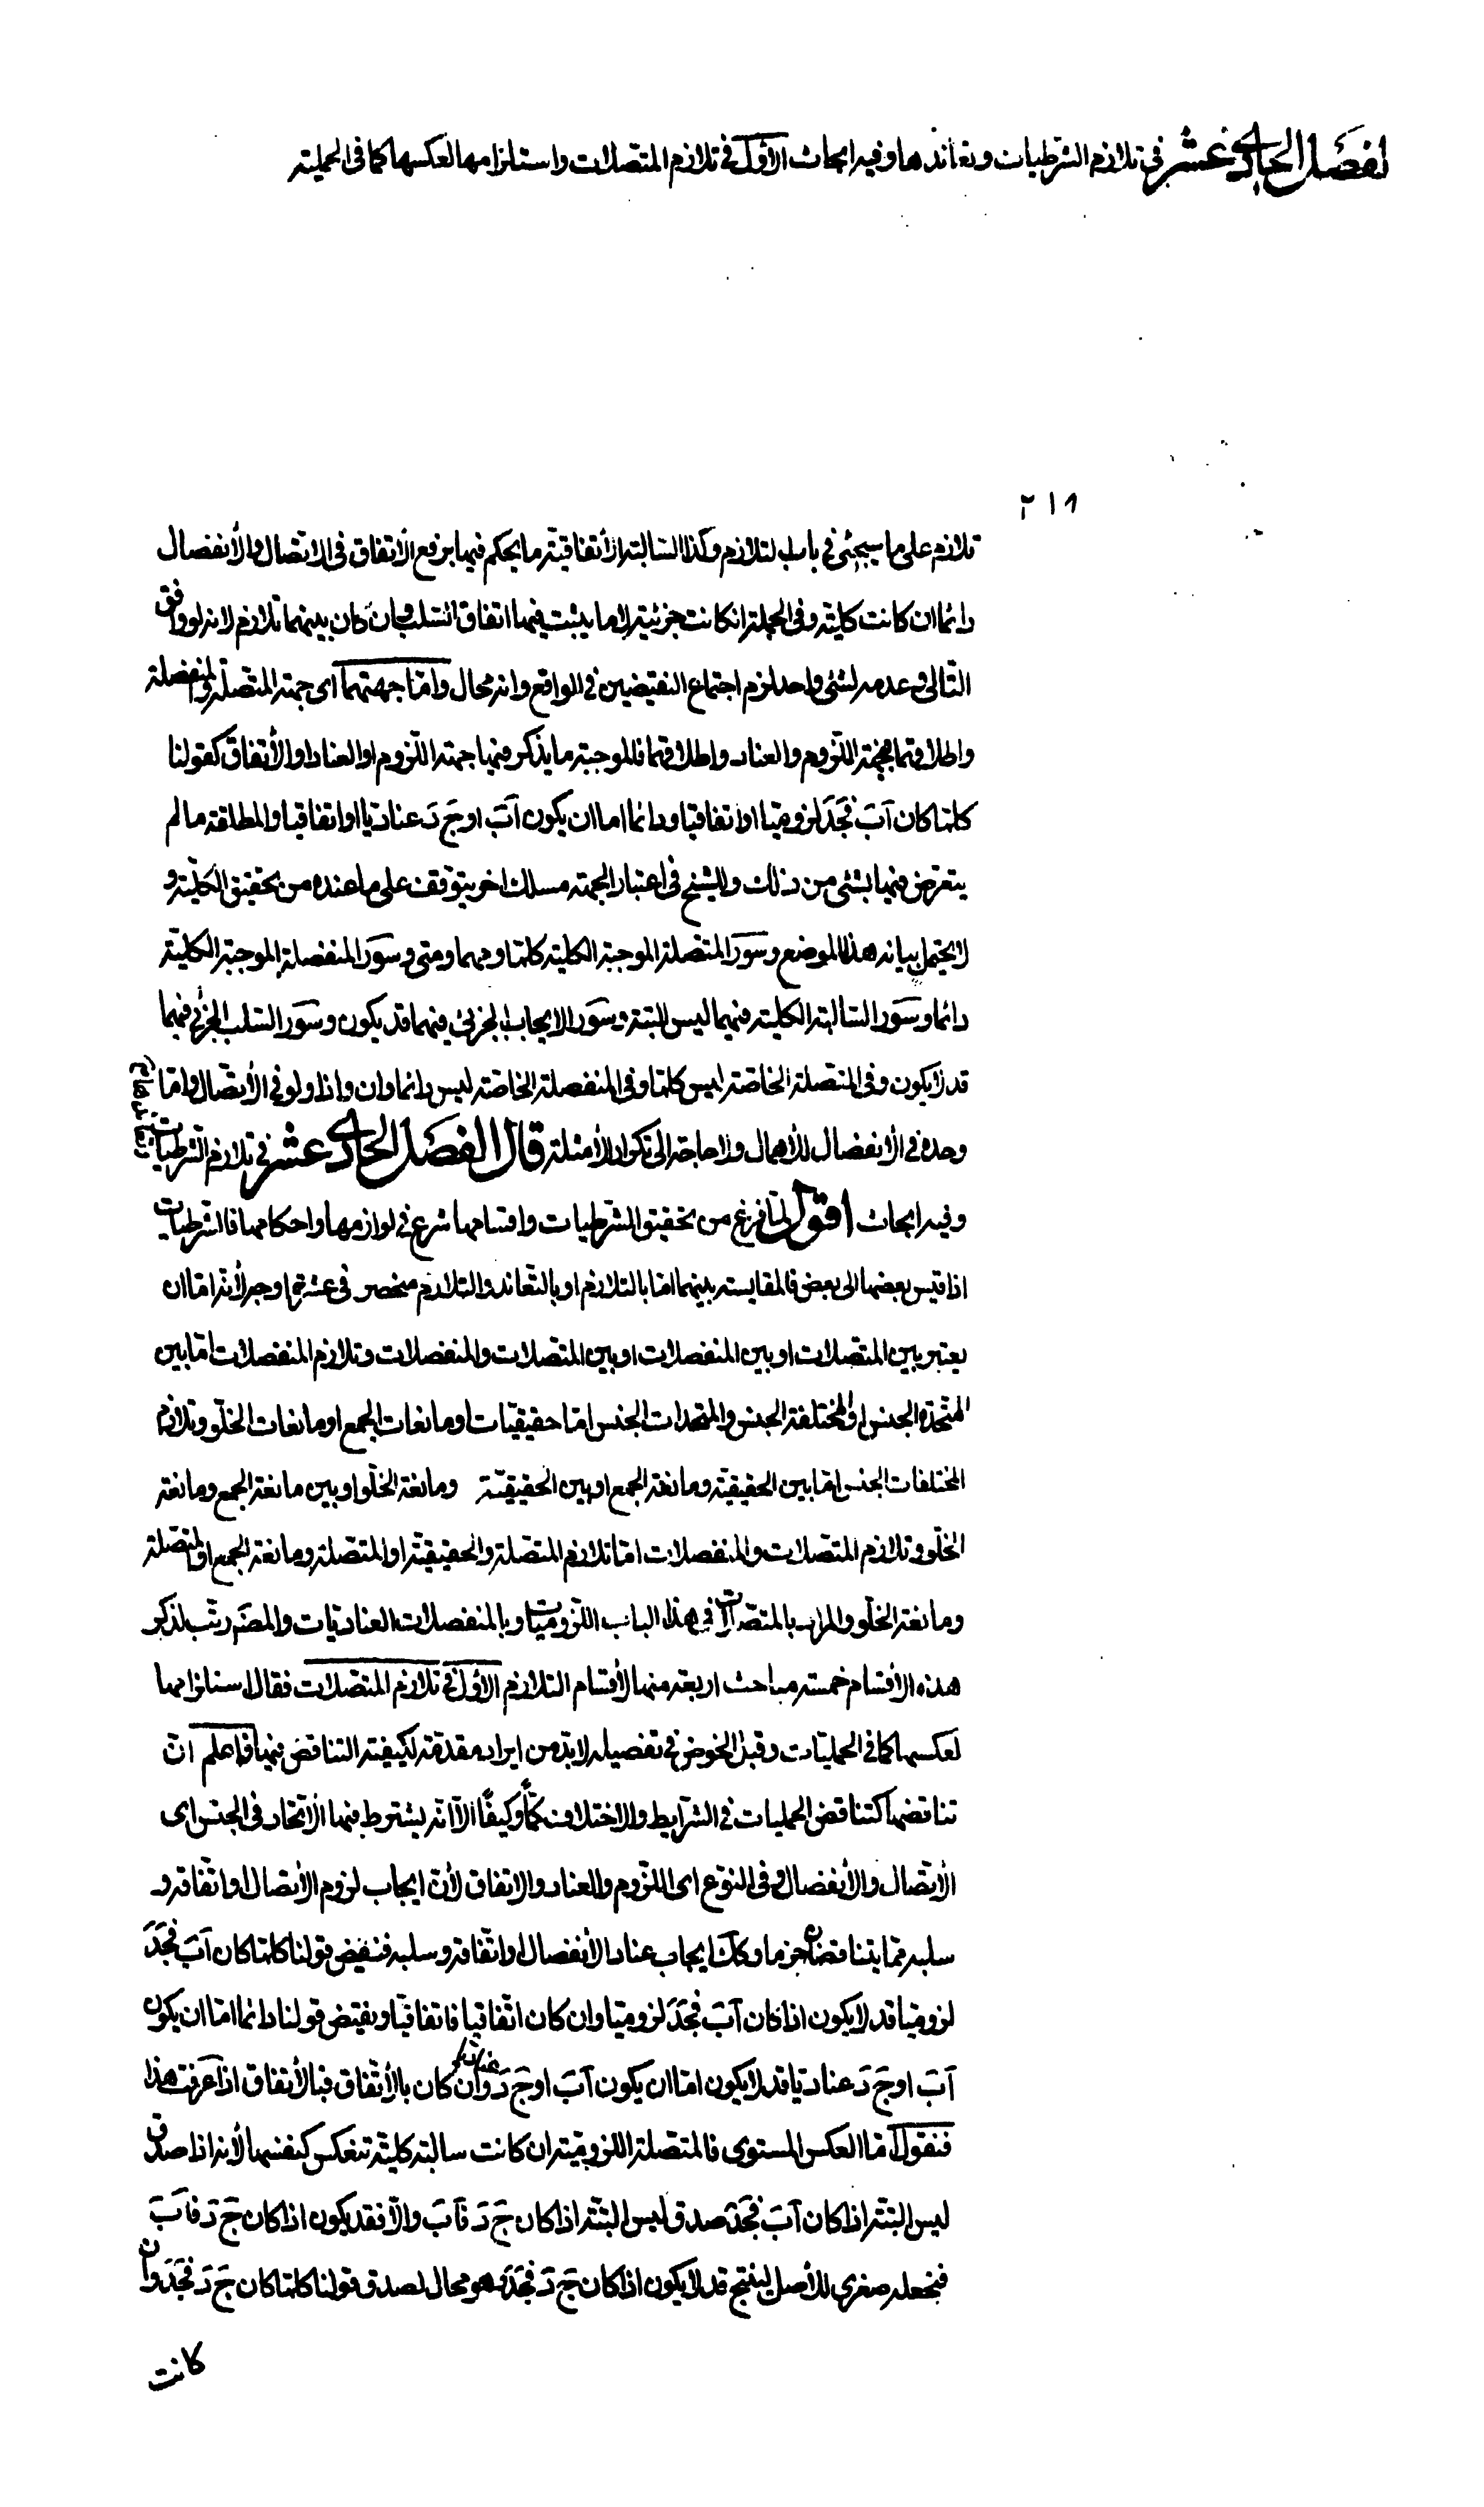 لفصل الحادي عشر في تلازم الشرطيات وتعاندها وفيه ابحاث الاول في تلازم المتصلات واستلزامها لعكسها كما في الحملية
٢١٨
تلازم على ما سيجئ في باب التلازم وكذا السالبة الاتفاقية ما يحكم فيها برفع الاتفاق في الاتصال والانفصال
دائما ان كانت كلية وفي الجملة ان كانت جزئية لا ما يثبت فيها اتفاق السلب وان كان بينهما تلازم لانه لو وافق
التالي وعدمه لشئ واحد لزم اجتماع النقيضين في الواقع وانه محال واما جهتهما اى جهة المتصلة والمنفصلة
واطلاقهما فجهة اللزوم والعناد واطلاقهما فالموجبة ما يذكر فيها جهة اللزوم او العناد او الاتفاق كقولنا
كلما كان آب فجد لزوميا او اتفاقيا ودائما اما ان يكون آب او ج د عناديا او اتفاقيا والمطلقة ما لم
يتعرض فيها بشئ من ذلك وللشيخ في اعتبار الجهة مسلك اخر يتوقف على ما عنده من تحقيق الكلية و
لا يحتمل بيانه هذا الموضع وسور المتصلة الموجبة الكلية كلما ومهما ومتى وسور المنفصلة الموجبة الكلية
دائما وسور السالبة الكلية فيهما ليس البتة وسور الايجاب الجزئى فيهما قد يكون وسور السلب الجزئى فيهما
قد لا يكون وفي المتصلة الخاصة ليس كلما وفي المنفصلة الخاصة ليس دائما وان واذا ولو في الاتصال واما
وحده في الانفصال للاهمال ولا حاجة الى تكرار الامثلة قال الفصل الحادي عشر في تلازم الشرطيات
وفيه ابحاث اقول لما فرغ من تحقيق الشرطيات واقسامها شرع في لوازمها واحكامها فالشرطيات
اذا قيس بعضها الى بعض فالمقايسة بينهما اما بالتلازم او بالتعاند والتلازم منحصر في عشرة اوجه لانه اما ان
يعتبر بين المتصلات او بين المنفصلات او بين المتصلات والمنفصلات وتلازم المنفصلات اما بين
المتحدة الجنس او المختلفة الجنس والمتحدات الجنس اما حقيقيات او مانعات الجمع او مانعات الخلو وتلازم
المختلفات الجنس اما بين الحقيقية ومانعة الجمع او بين الحقيقية ومانعة الخلو او بين مانعة الجمع ومانعة
الخلو وتلازم المتصلات والمنفصلات اما تلازم المتصلة والحقيقية او المتصلة ومانعة الجمع او المتصلة
ومانعة الخلو والمراد بالمتصلات في هذا الباب اللزوميات وبالمنفصلات العناديات والمصنف رتب لذكر
هذه الاقسام خمسة مباحث اربعة منها لاقسام التلازم الاول في تلازم المتصلات فقال استلزامها
لعكسها كما في الحمليات وقبل الخوض في تفصيله لابد من ايراد مقدمة لكيفية التناقض فيها فاعلم ان
تناقضها كتناقض الحمليات في الشرايط والاختلاف كما وكيفا الا انه يشترط فيها الاتحاد في الجنس اى
الاتصال والانفصال وفي النوع اى اللزوم والعناد والاتفاق لان ايجاب لزوم الاتصال او اتفاقه و
سلبه مما يتناقضان جزما وكك ايجاب عناد الانفصال او اتفاقه وسلبه فنقيض قولنا كلما كان آب فجد
لزوميا قد لا يكون اذا كان آب فجد لزوميا وان كان اتفاقيا فاتفاقيا ونقيض قولنا دائما اما ان يكون
آب او ج د عناديا قد لا يكون اما ان يكون آب او ج د عناديا وان كان بالاتفاق فبالاتفاق اذا عرفت هذا
فنقول اما العكس المستوى فالمتصلة اللزومية ان كانت سالبة كلية تنعكس كنفسها لانه اذا صدق
ليس البتة اذا كان آب فجد صدق ليس البتة اذا كان ج د فآب والا فقد يكون اذا كان ج د فآب
فنجعله صغرى للاصل لينتج قد لا يكون اذا كان ج د فجد وهو محال لصدق قولنا كلما كان ج د فجد وان
كانت